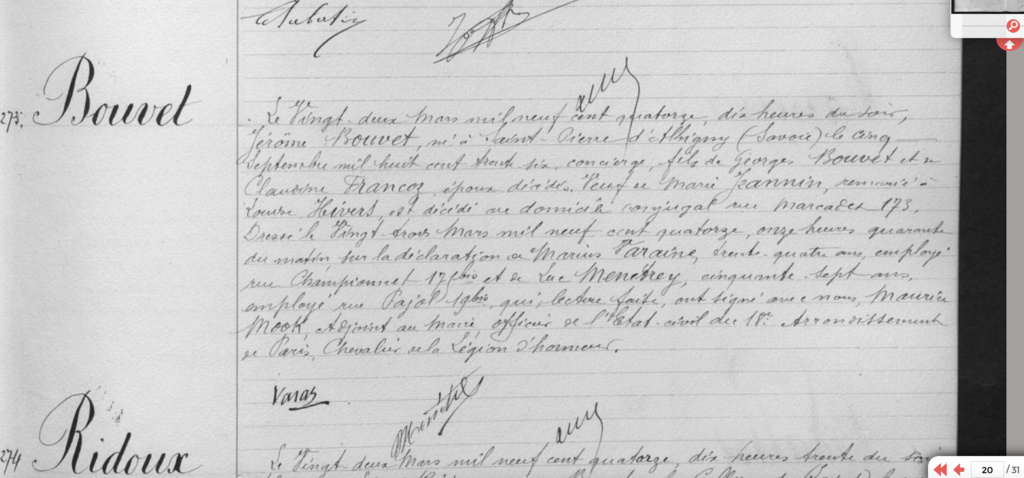 273.
Bouvet
Le Vingt-deux Mars mil neuf cent quatorze, dix heures du soir,
Jérôme Bouvet, né à Saint-Pierre d'Albigny (Savoie) le cinq
Septembre mil huit cent trente six, concierge, fils de Georges Bouvet et de
Claudine Francoz, époux décédés. Veuf de Marie Jeannin, remarié à
Louise Hivert, est décédé au domicile conjugal rue Marcadet 173.
Dressé le Vingt trois Mars mil neuf cent quatorze, onze heures quarante
du matin sur la déclaration de Marius Varaine, trente-quatre ans, employé
rue Championnet 176bis et de Luc Menétrey, cinquante-sept ans,
employé rue Pajol 19bis, qui, lecture faite, ont signé avec nous, Maurice
Mook, Adjoint au Maire, officier de l'Etat-civil du 18e Arrondissement
de Paris, Chevalier de la Légion d'honneur.
274
Ridoux
Le Vingt deux Mars mil neuf cent quatorze, dix heures trente du soir
20 / 31